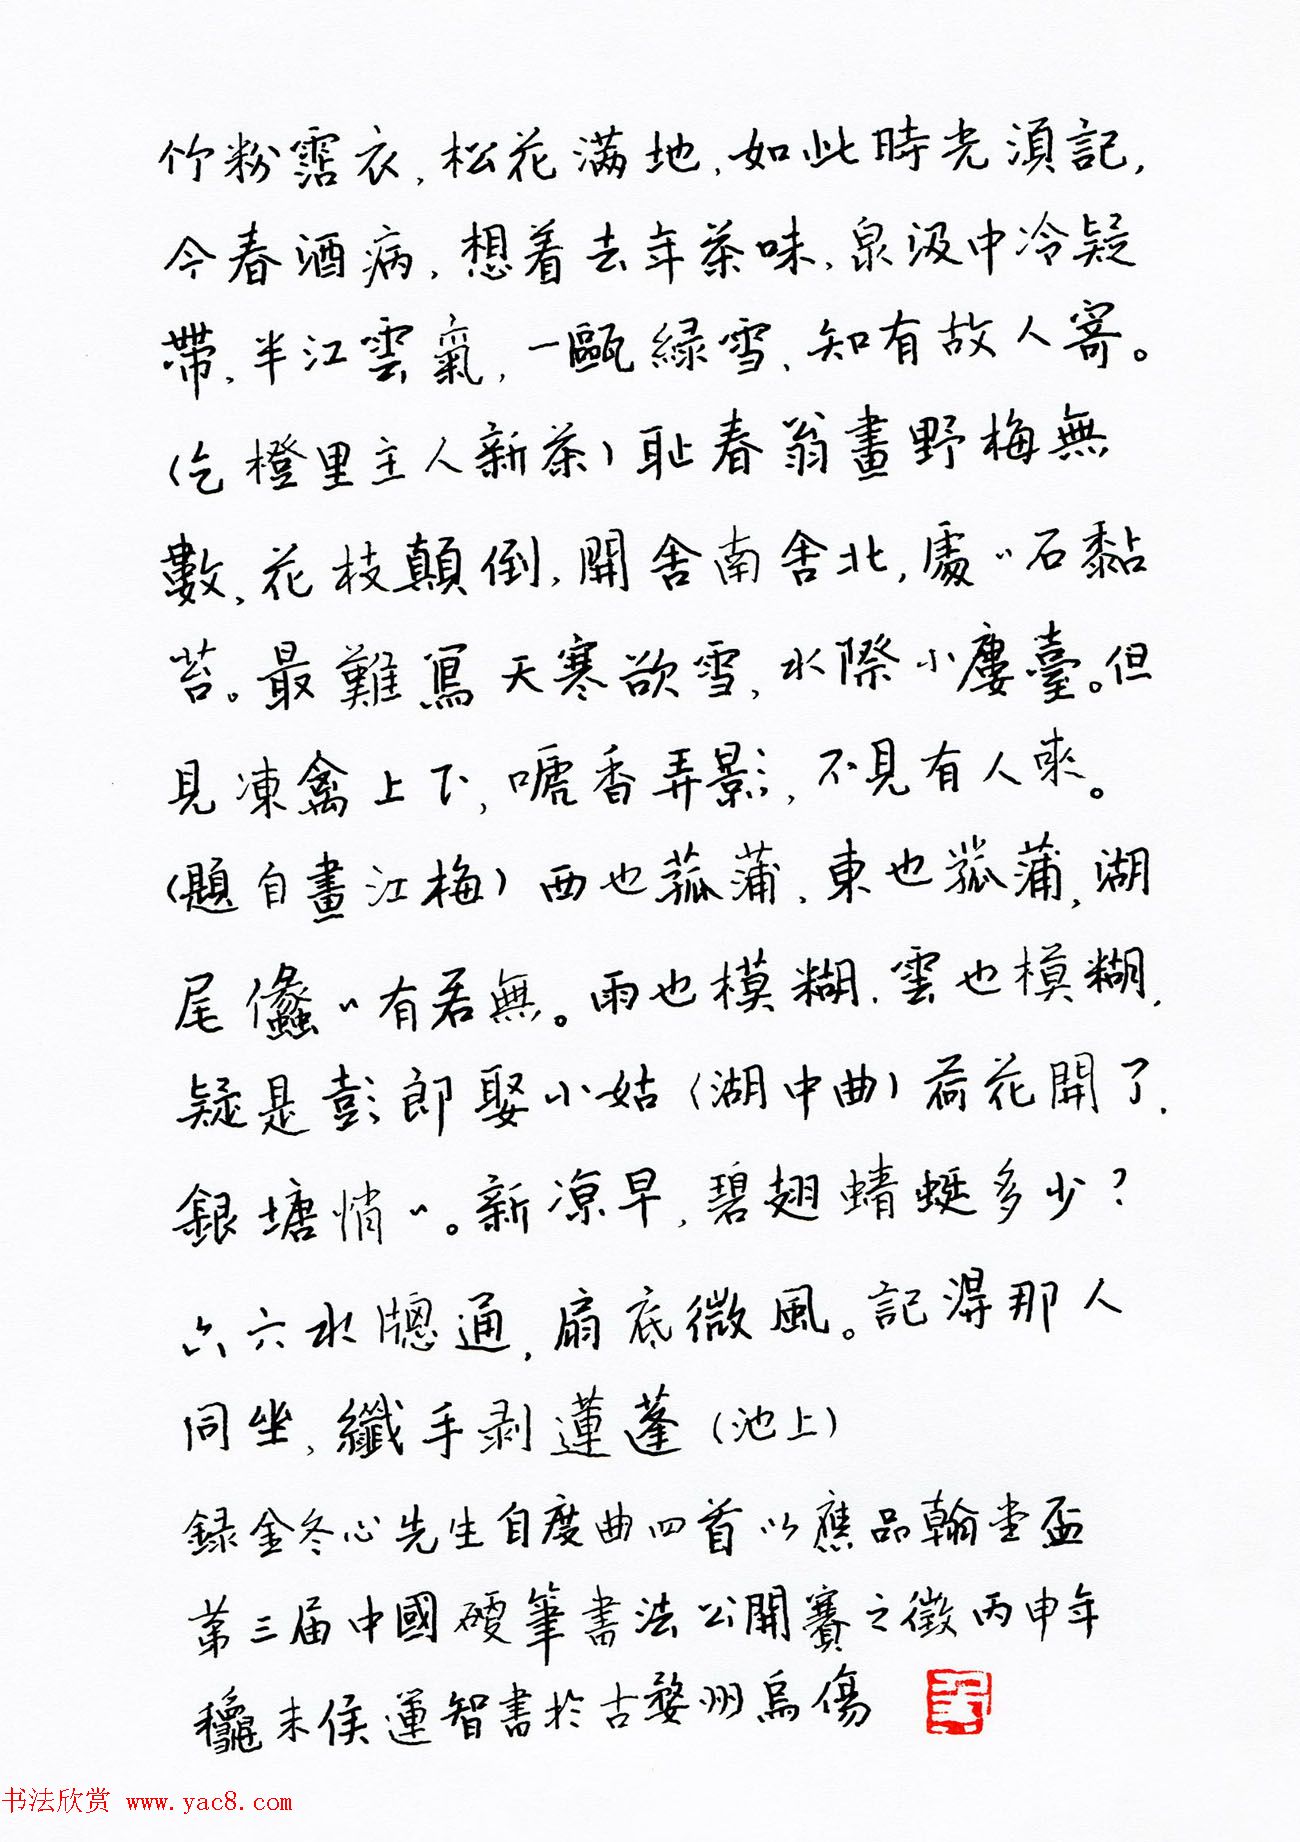 竹粉霑衣，松花满地，如此時光須記，
今春酒病，想着去年茶味，泉汲中冷疑
帶，半江雲氣，一甌緑雪，知有故人寄。
（乞橙里主人新茶）耻春翁畫野梅無
數，花枝顛倒，開舍南舍北，處〃石黏
苔。最難寫天寒欲雪，水際小廔臺。但
見凍禽上下，嗁香弄影，不見有人來。
（題自畫江梅）西也菰蒲，東也菰蒲，湖
尾儵〃有若無。雨也模糊，雲也模糊，
疑是彭郎娶小姑（湖中曲）荷花開了，
銀塘悄〃。新凉早，碧翅蜻蜓多少？
六六水牕通，扇底微風。記得那人
同坐，纖手剥蓮蓬（池上）
録金冬心先生自度曲四首以應品翰堂盃
第三届中國硬筆書法公開賽之徵丙申年
穐末侯運智書於古婺州烏傷
书法欣赏 www.yac8.com